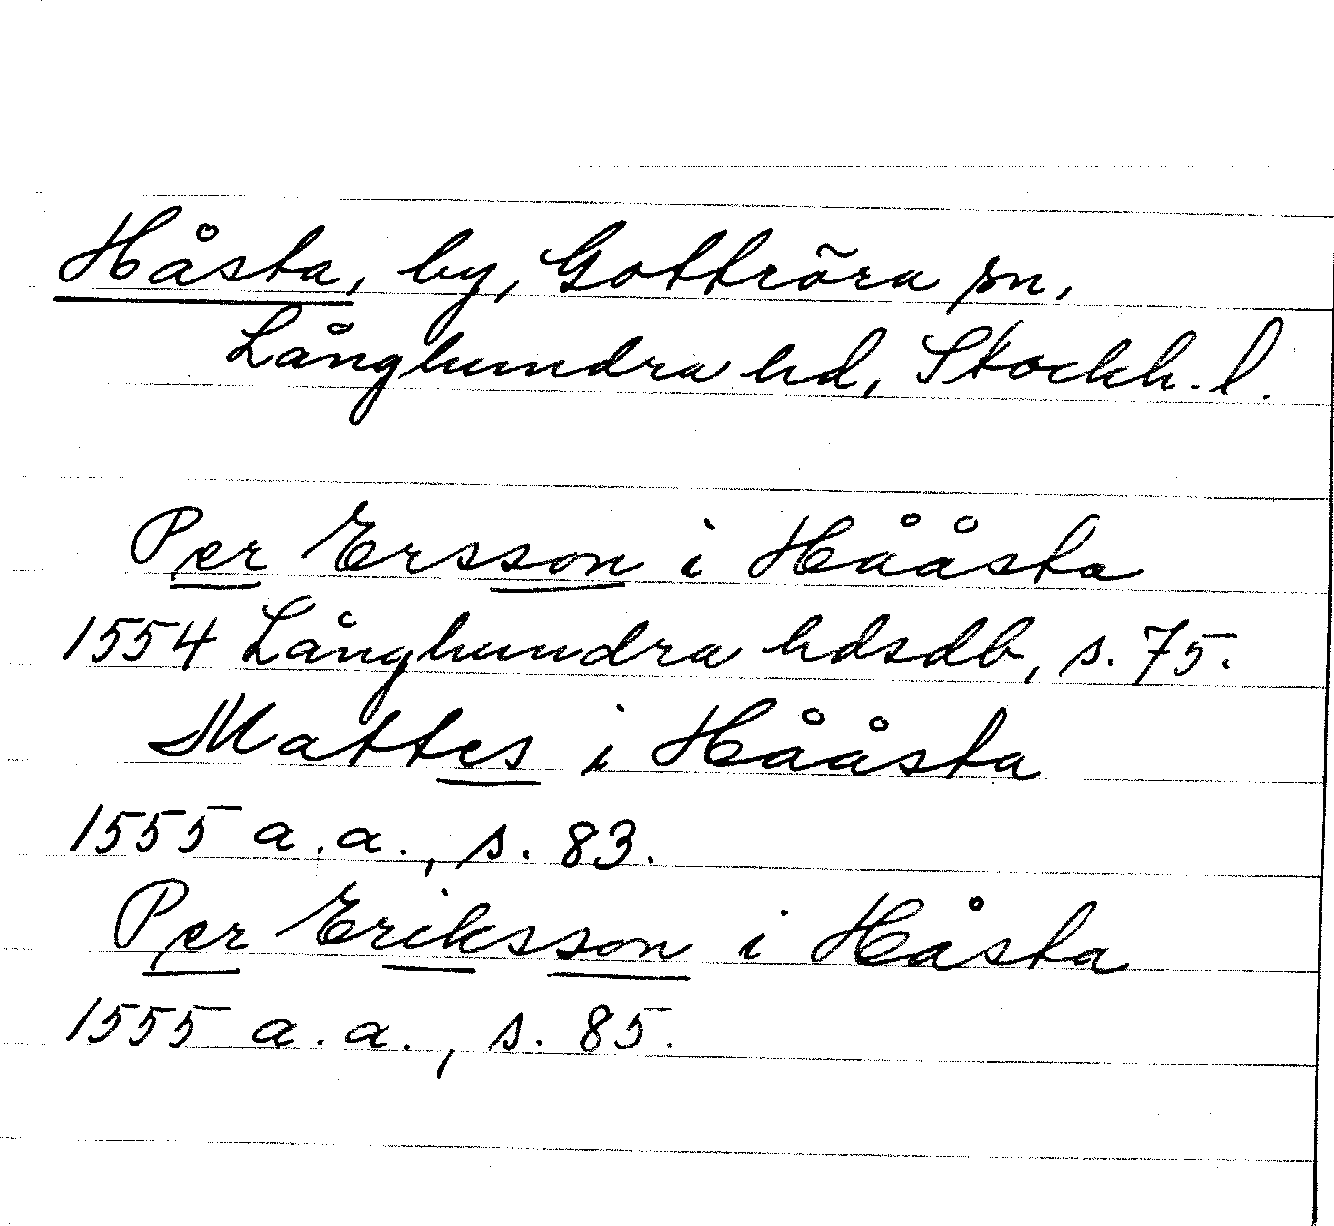 Håsta, by, Gottröra sn,
Långhundra hd, Stockh. l.
Per Ersson i Hååsta
1554 Långhundra hdsdb, s. 75.
Mattes i Hååsta
1555 a.a., s. 83.
Per Eriksson i Håsta
1555 a.a., s. 85.